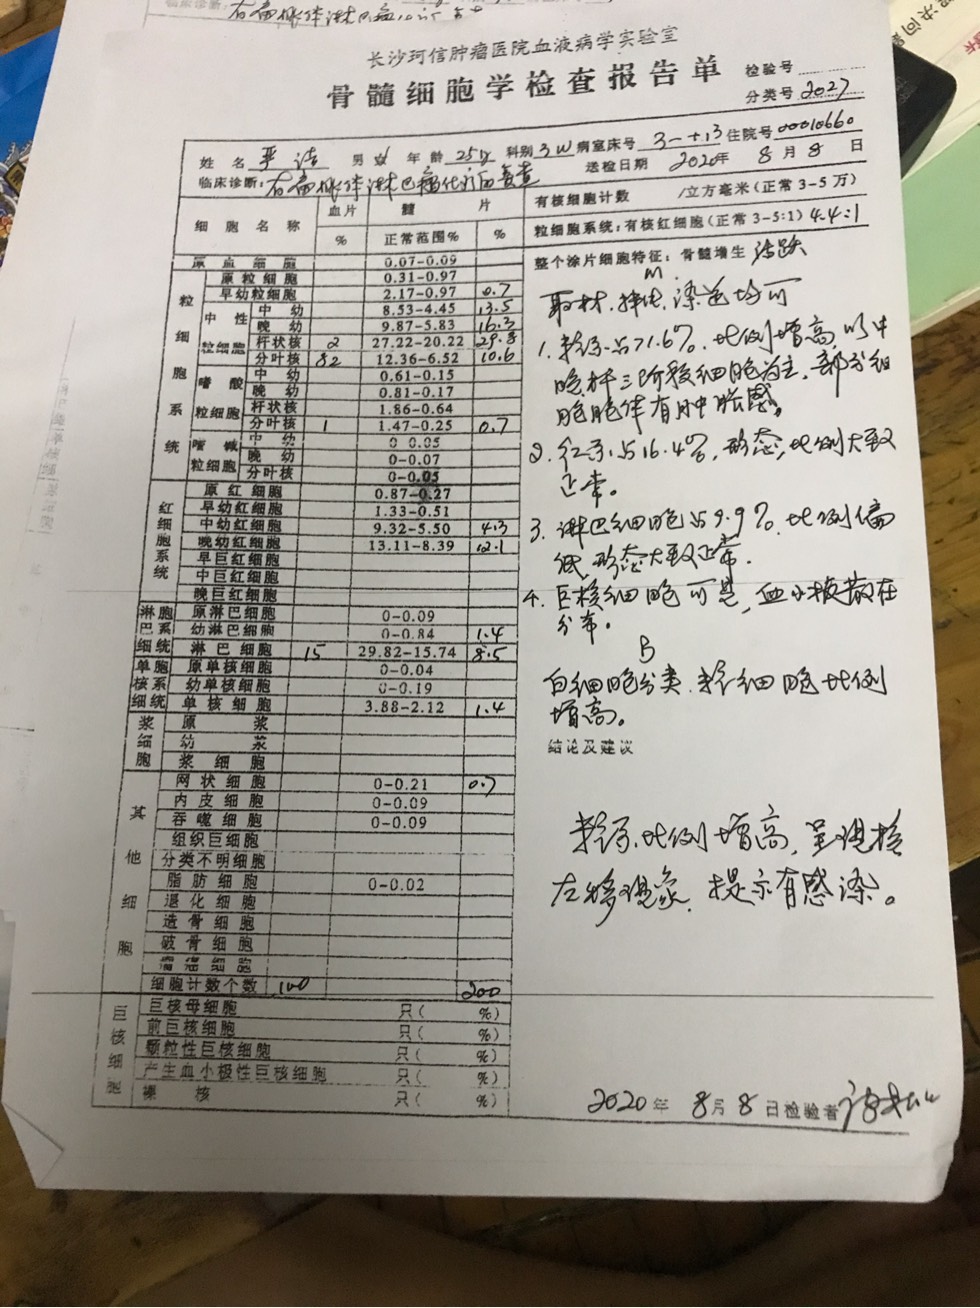 右扁桃体淋巴瘤
长沙珂信肿瘤医院血液病学实验室
骨髓细胞学检查报告单
检验号
分类号 2027
姓名 男 女 年龄 25岁 科别 3W 病室床号 3-+13 住院号 00010660
临床诊断: 右扁桃体淋巴瘤化疗后复查 送检日期 2020年 8月 8日
细胞名称 血片 % 髓片 正常范围% %
有核细胞计数 /立方毫米(正常3-5万)
粒细胞系统:有核红细胞(正常3-5:1) 4.4:1
整个涂片细胞特征:骨髓增生 活跃
粒细胞系统
原血细胞 0.07-0.09
原粒细胞 0.31-0.97
早幼粒细胞 2.17-0.97 0.7
中性粒细胞
中幼 8.53-4.45 13.5
晚幼 9.87-5.83 16.3
杆状核 2 27.22-20.22 29.8
分叶核 82 12.36-6.52 10.6
嗜酸粒细胞
中幼 0.61-0.15
晚幼 0.81-0.17
杆状核 1.86-0.64
分叶核 1 1.47-0.25 0.7
嗜碱粒细胞
中幼 0-0.05
晚幼 0-0.07
分叶核 0-0.05
红细胞系统
原红细胞 0.87-0.27
早幼红细胞 1.33-0.51
中幼红细胞 9.32-5.50 4.3
晚幼红细胞 13.11-8.39 12.1
早巨红细胞
中巨红细胞
晚巨红细胞
淋巴细胞系统
原淋巴细胞 0-0.09
幼淋巴细胞 0-0.84 1.4
淋巴细胞 15 29.82-15.74 8.5
单核细胞系统
原单核细胞 0-0.04
幼单核细胞 0-0.19
单核细胞 3.88-2.12 1.4
浆细胞
原浆
幼浆
浆细胞
其他细胞
网状细胞 0-0.21 0.7
内皮细胞 0-0.09
吞噬细胞 0-0.09
组织巨细胞
分类不明细胞
脂肪细胞 0-0.02
退化细胞
造骨细胞
破骨细胞
瘤癌细胞
细胞计数个数 100 200
巨核细胞
巨核母细胞 只( %)
前巨核细胞 只( %)
颗粒性巨核细胞 只( %)
产生血小板性巨核细胞 只( %)
裸核 只( %)
M
取材、染色均可
1. 粒系占71.6%,比例增高,以中
晚杆三阶段细胞为主,部分细
胞胞体有肿胀感。
2. 红系占16.4%,形态,比例大致
正常。
3. 淋巴细胞占9.9%,比例偏
低,形态大致正常.
4. 巨核细胞可见,血小板散在
分布。
B
白细胞分类,粒细胞比例
增高。
结论及建议
粒系比例增高,呈现核
左移现象,提示有感染。
2020年 8月 8日检验者